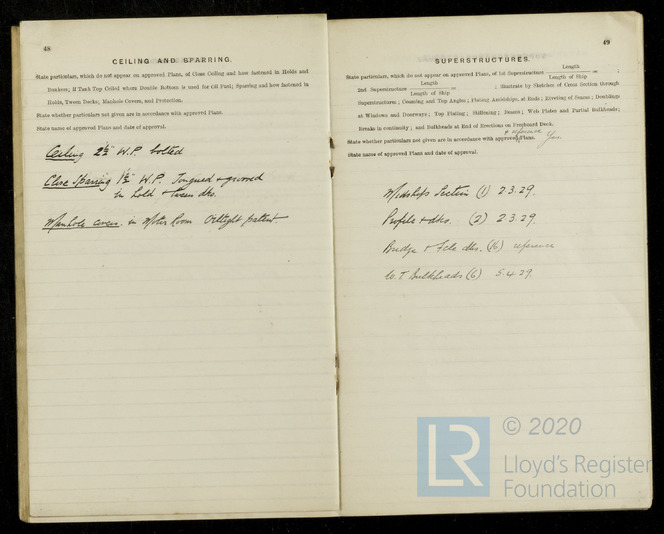 48
CEILING AND SPARRING.
State particulars, which do not appear on approved Plans, of Close Ceiling and how fastened in Holds and
Bunkers; if Tank Top Ceiled where Double Bottom is used for Oil Fuel; Sparring and how fastened in
Holds, Tween Decks; Manhole Covers, and Protection.
State whether particulars not given are in accordance with approved Plans.
State name of approved Plans and date of approval.
Ceiling 2½" W.P. bolted
Close Sparring 1½" W.P. Tongued & grooved
in hold & tween dks.
Manhole covers in Motor Room Oiltight patent
49
SUPERSTRUCTURES.
State particulars, which do not appear on approved Plans, of 1st Superstructure Length / Length of Ship = ;
2nd Superstructure Length / Length of Ship = ; Illustrate by Sketches of Cross Section through
Superstructures; Coaming and Top Angles; Plating Amidships, at Ends; Riveting of Seams; Doublings
at Windows and Doorways; Top Plating; Stiffening; Beams; Web Plates and Partial Bulkheads;
Breaks in continuity; and Bulkheads at End of Erections on Freeboard Deck.
& reference
State whether particulars not given are in accordance with approved Plans. Yes.
State name of approved Plans and date of approval.
Midships Section (1) 2.3.29.
Profile & dks. (2) 2.3.29.
Bridge & Fcle dks. (16) reference
W.T. Bulkheads (6) 5.4.29.
LR
© 2020
Lloyd's Register
Foundation